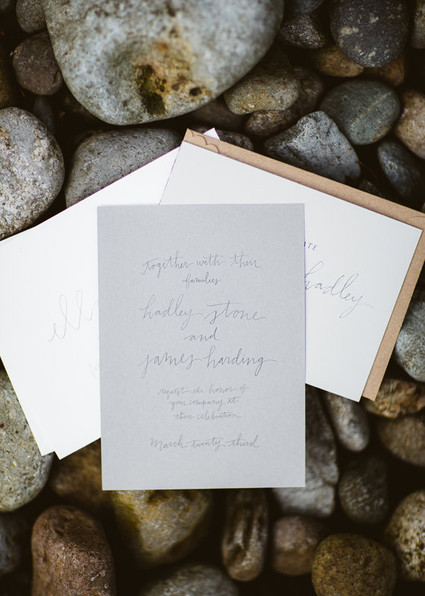 together with their
families
hadley stone
and
james harding
request the honor of
your company at
their celebration
march twenty-third
hadley